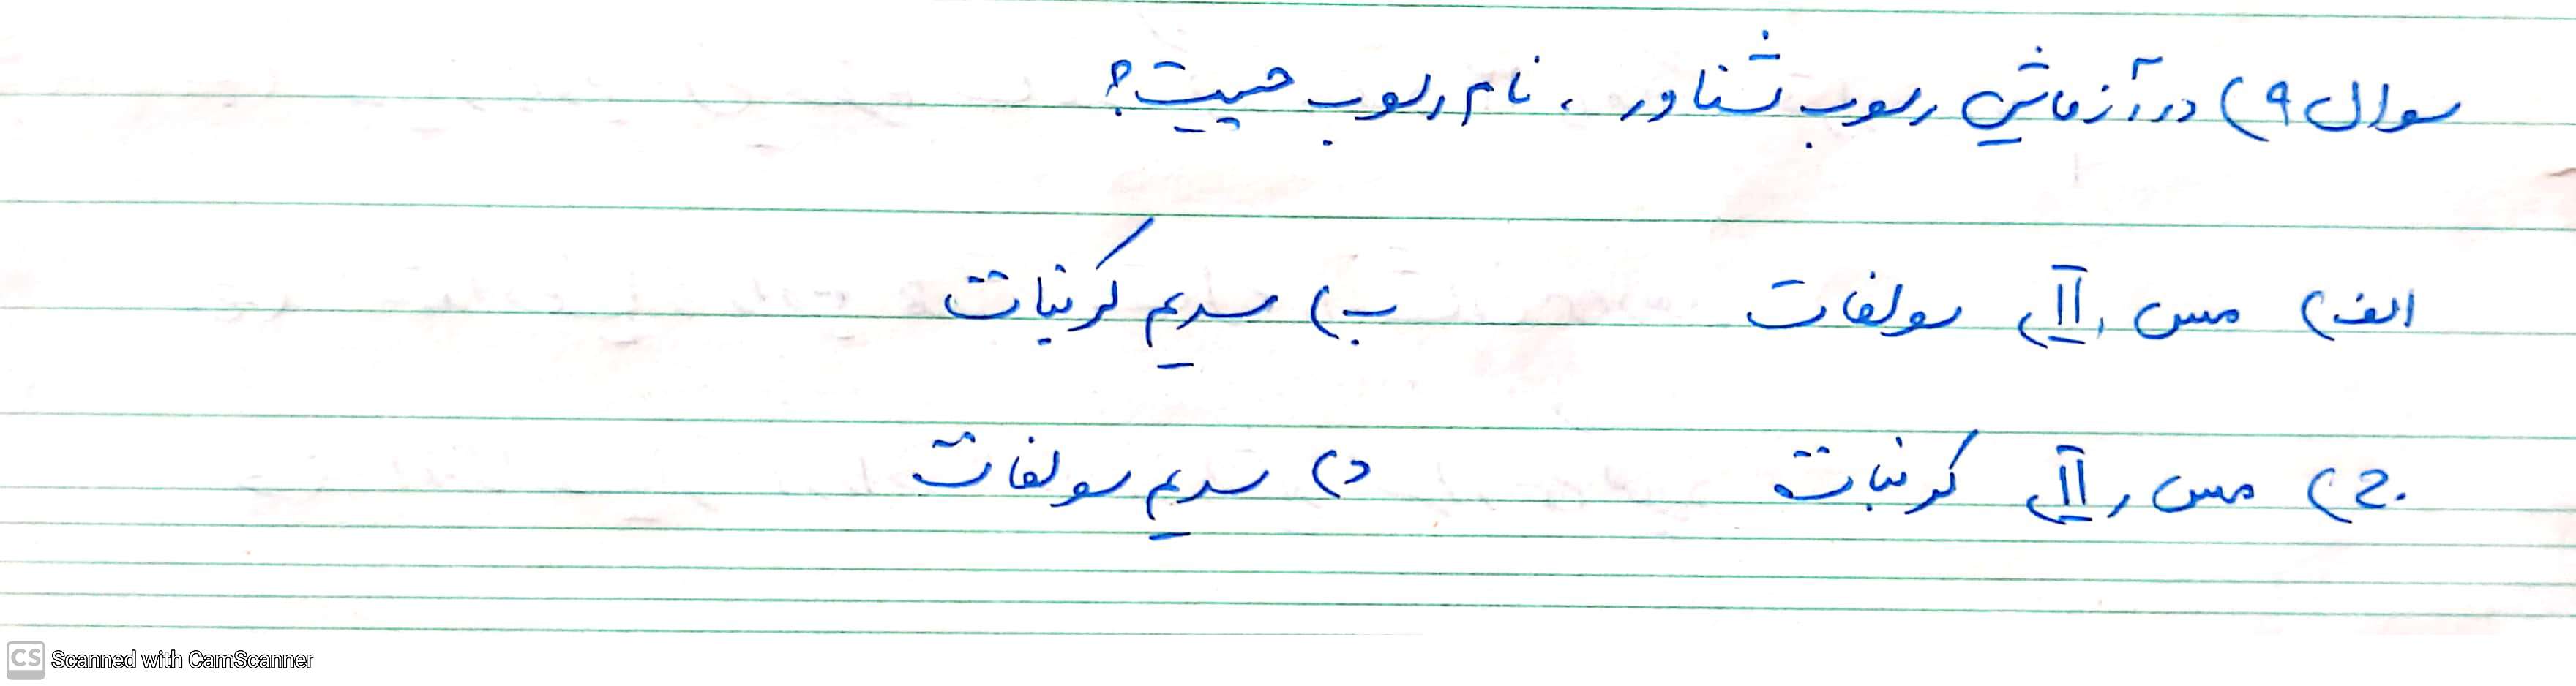 سوال ۹) در آزمایش رسوب شناور ، نام رسوب چیست؟
الف) مس (II) سولفات ب) سدیم کربنات
ج) مس (II) کربنات د) سدیم سولفات
CS Scanned with CamScanner